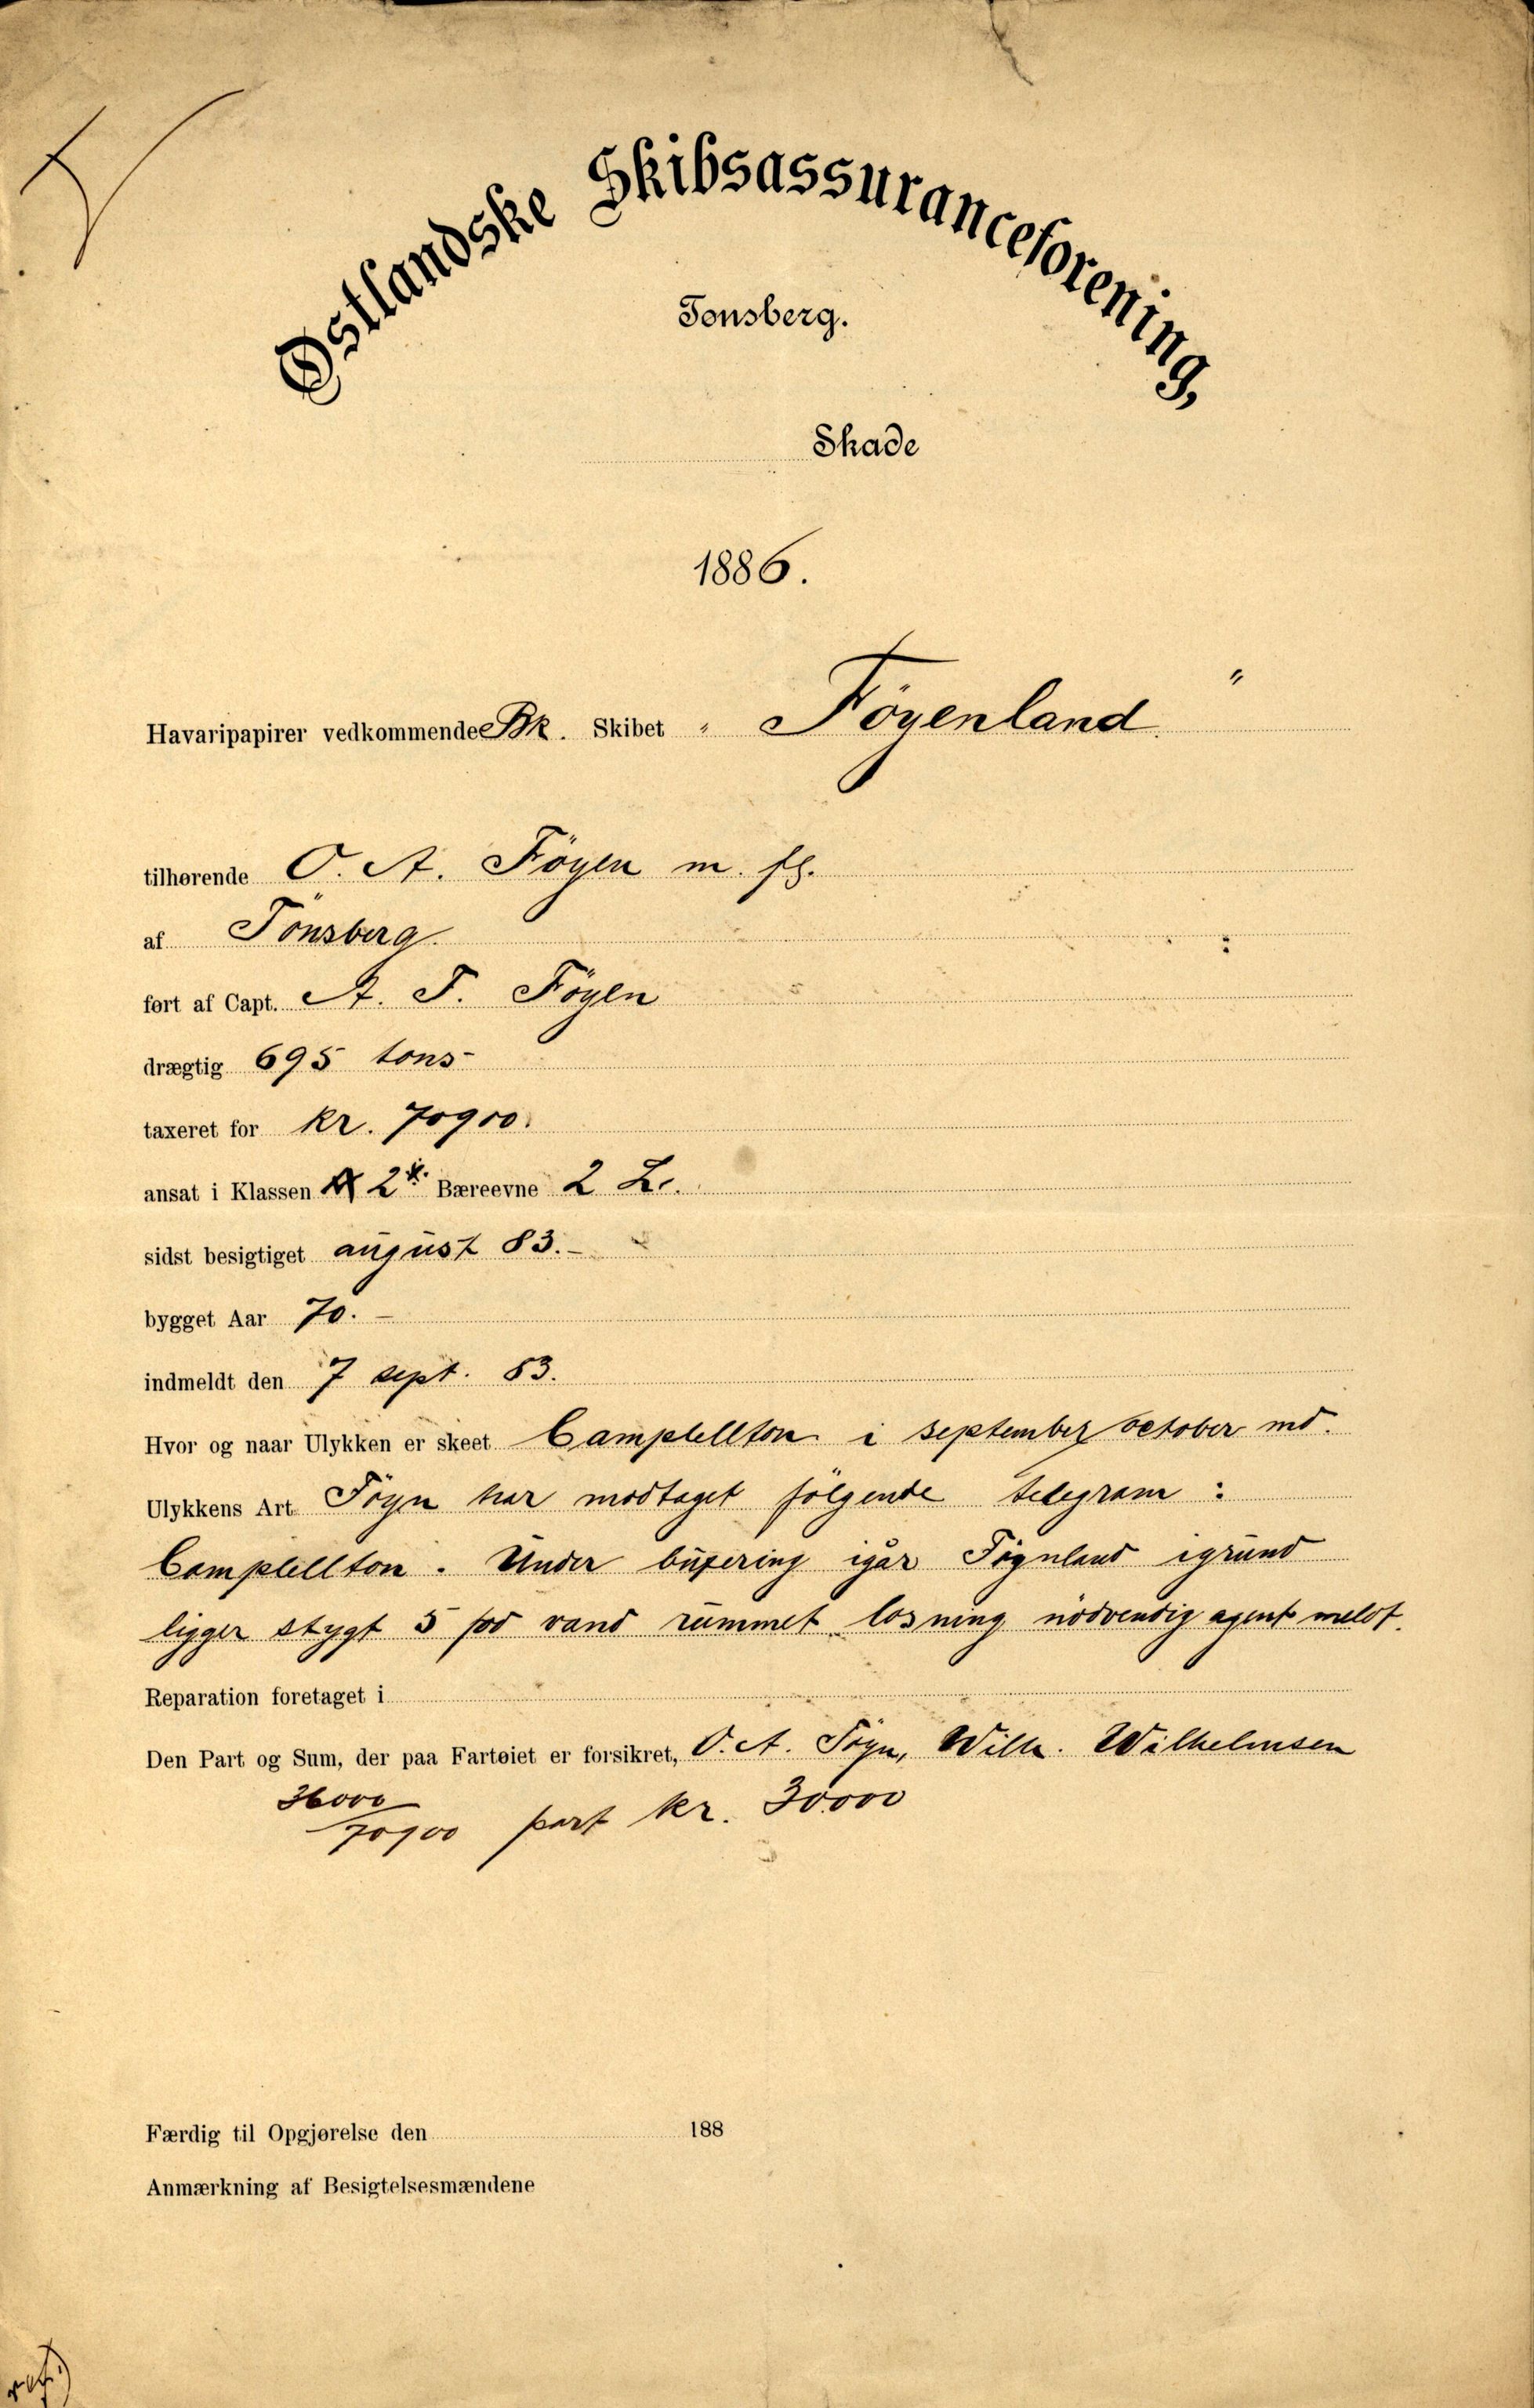 Østlandske Skibsassuranceforening,
Tønsberg.
Skade
1886.
Havaripapirer vedkommende Bk. Skibet " Föyenland. "
tilhørende O. A. Föyen m. fl.
af Tönsberg.
ført af Capt. A. F. Föyen
drægtig 695 tons-
taxeret for kr. 70900.
ansat i Klassen 2 Bæreevne 2 L.
sidst besigtiget august 83.-
bygget Aar 70.-
indmeldt den 7 sept. 83.
Hvor og naar Ulykken er skeet Camplellton i september october md.
Ulykkens Art Föyn har modtaget fölgende telegram :
Camplellton. Under buxering igår Föynland igrund
ligger stygt 5 fod vand rummet losning nödvendig agent meldt.
Reparation foretaget i
Den Part og Sum, der paa Fartøiet er forsikret, O. A. Föyn, Wilh. Wilhelmsen
36000/70900 part kr. 30000
Færdig til Opgjørelse den 188
Anmærkning af Besigtelsesmændene